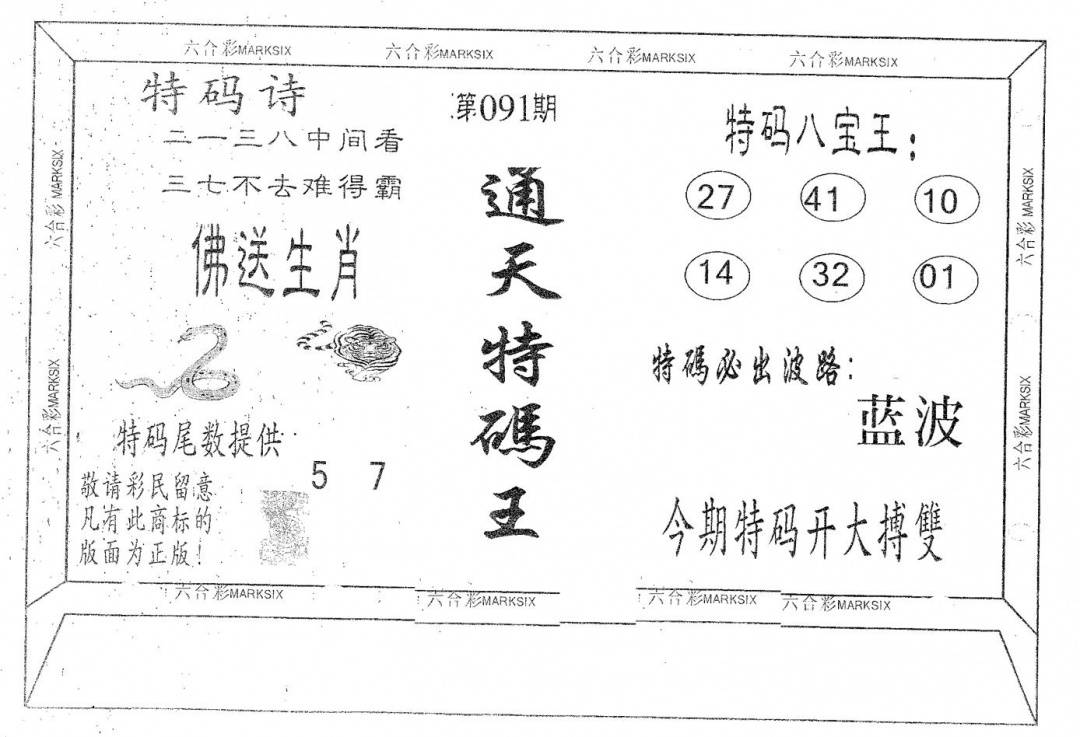 六合彩MARKSIX
六合彩MARKSIX
六合彩MARKSIX
六合彩MARKSIX
特码诗
二一三八中间看
三七不去难得霸
佛送生肖
特码尾数提供
5 7
敬请彩民留意
凡有此商标的
版面为正版！
第091期
通天特碼王
特码八宝王：
27 41 10
14 32 01
特碼必出波路：
蓝波
今期特码开大搏雙
六合彩MARKSIX
六合彩MARKSIX
六合彩MARKSIX
六合彩MARKSIX
六合彩MARKSIX
六合彩MARKSIX
六合彩MARKSIX
六合彩MARKSIX